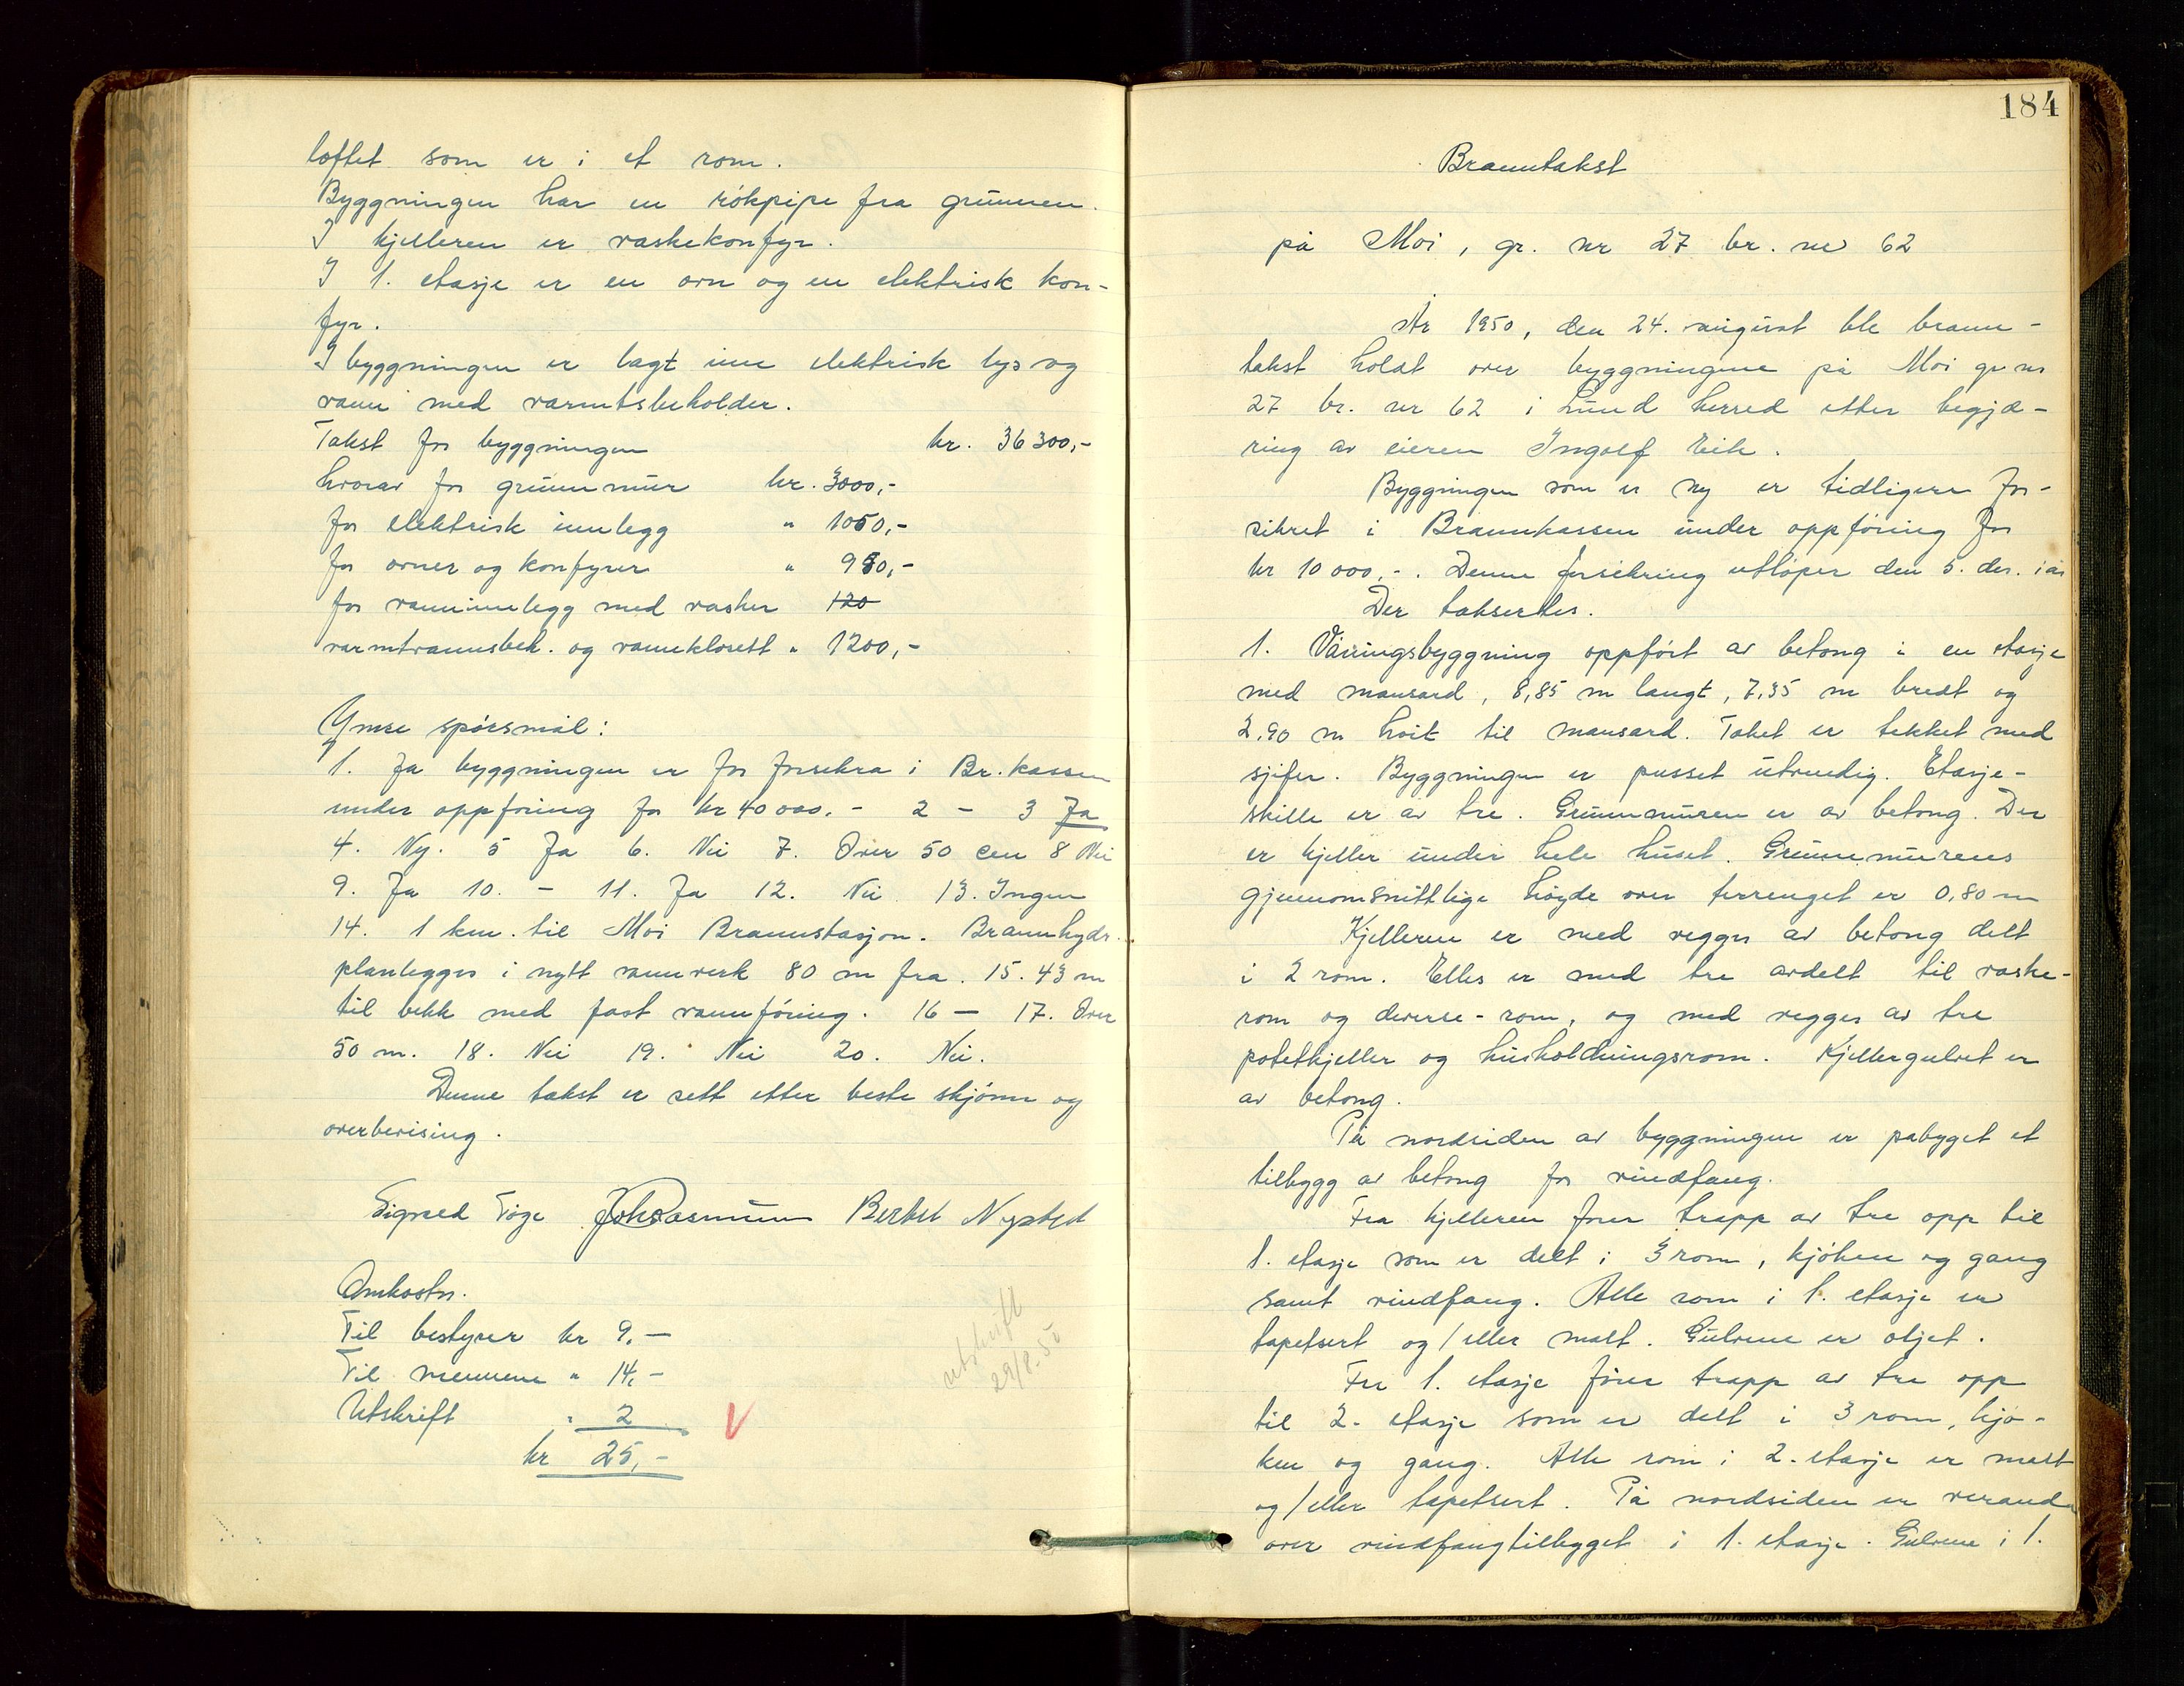 loftet som er i et rom.
Byggningen har en rökpipe fra grunnen.
I kjelleren er vaskekomfyr.
I 1. etasje er en ovn og en elektrisk kom-
fyr.
I byggningen er lagt inn elektrisk lys og
vann med varmtsbeholder.
Takst for byggningen kr. 36300,-
hvorav for grunnmur kr. 3000,-
for elektrisk innlegg " 1050,-
for ovner og komfyrer " 950,-
for vanninnlegg med vasker 120
varmtvannsbeh. og vannklosett " 1200,-
Ymse spörsmål:
1. Ja byggningen er for forsekra i Br.kassen
under oppföring for kr 40000.- 2 - 3 Ja
4. Ny. 5 Ja 6. Nei 7. Over 50 cm 8 Nei
9. Ja 10. - 11. Ja 12. Nei 13. Ingen
14. 1 km. til Moi Brannstasjon. Brannhydr.
planlegges i nytt vannverk 80 m fra. 15. 43 m
til bekk med fast vannföring. 16 — 17. Over
50 m. 18. Nei 19. Nei 20. Nei.
Denne takst er sett etter beste skjönn og
overbevising.
Sigved Joh Rasmussen Bertel Nystøl
Omkostn.
Til bestyrer kr 9.—
Til mennene " 14,-
Utskrift " 2
kr 25,-
utskrift
29/8-50
184
Branntakst
på Moi, gr. nr 27 br. nr 62
År 1950, den 24. august ble brann-
takst holdt over byggningene på Moi gr nr
27 br. nr 62 i Lund herred etter begjæ-
ring av eieren Ingolf Eik.
Byggningen som er ny er tidligere for-
sikret i Brannkassen under oppföring for
kr 10000,-. Denne forsikring utlöper den 5. des. i år
Der taksertes.
1. Våningsbyggning oppfört av betong i en etasje
med mansard, 8,85 m langt, 7,35 m bredt og
2,90 m höit til mansard. Taket er tekket med
sjifer. Byggningen er pusset utvendig. Etasje-
skille er av tre. Grunnmuren er av betong. Der
er kjeller under hele huset. Grunnmurens
gjennomsnittlige höyde over terrenget er 0,80 m
Kjelleren er med vegger av betong delt
i 2 rom. Elles er med tre avdelt til vaske-
rom og diverse-rom, og med vegger av tre
potetkjeller og husholdningsrom. Kjellergulvet er
av betong.
På nordsiden av byggningen er påbyget et
tilbygg av betong for vindfang.
Fra kjelleren förer trapp av tre opp til
1. etasje som er delt i 3 rom, kjöken og gang
samt vindfang. Alle rom i 1. etasje er
tapetsert og/eller malt. Gulvene er oljet.
Fra 1. etasje förer trapp av tre opp
til 2. etasje som er delt i 3 rom, kjö-
ken og gang. Alle rom i 2. etasje er malt
og/eller tapetsert. På nordsiden er veranda
over vindfangtilbygget i 1. etasje. Gulvene i 1.